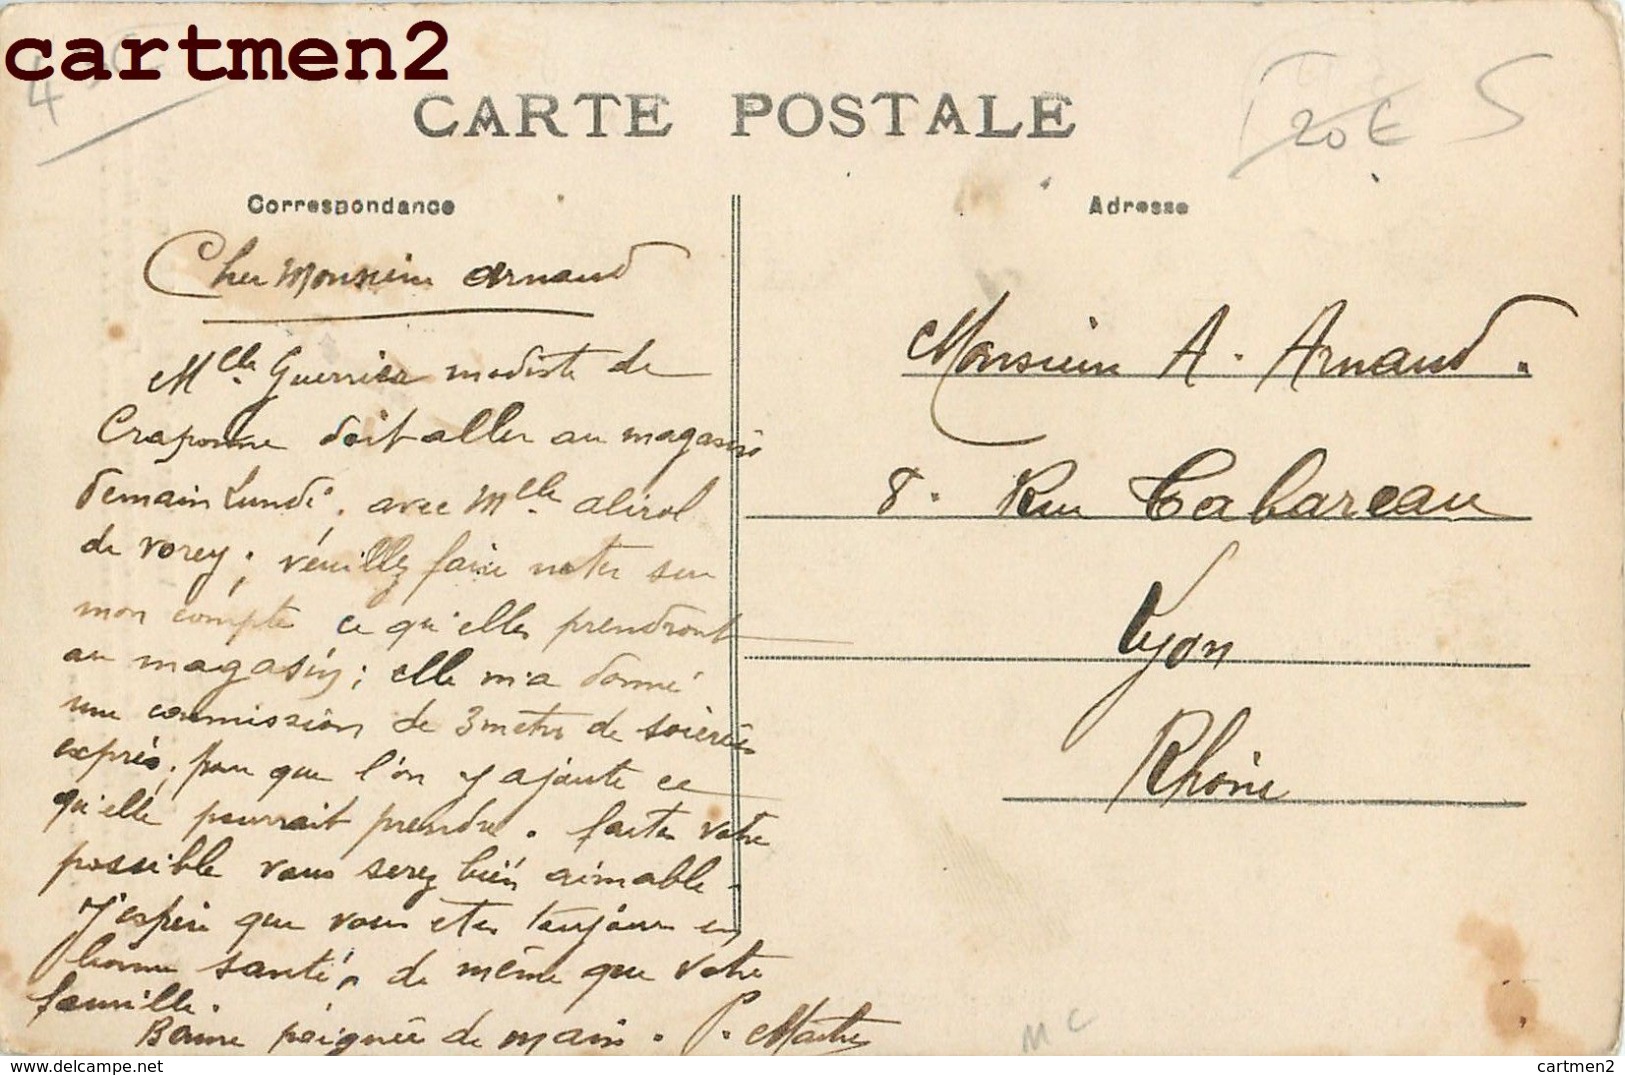 cartmen2
CARTE POSTALE
20 €
Correspondance
Cher Monsieur Arnaud
Mlle Guerrier modiste de
Craponne doit aller au magasin
demain Lundi. avec Mlle alirol
de vorey ; veuillez faire noter sur
mon compte ce qu'elles prendront
au magasin ; elle m'a donné
une commission de 3 metres de soieries
exprés, pour que l'on y ajoute ce
qu'elle pourrait prendre. faites votre
possible vous serez bien aimable.
J'espére que vous etes toujours en
bonne santé, de même que votre
famille.
Bonne poignée de main. P.
Adresse
Monsieur A. Arnaud.
8. Rue Tabareau
Lyon
Rhône
MC
delcampe.net
cartmen2